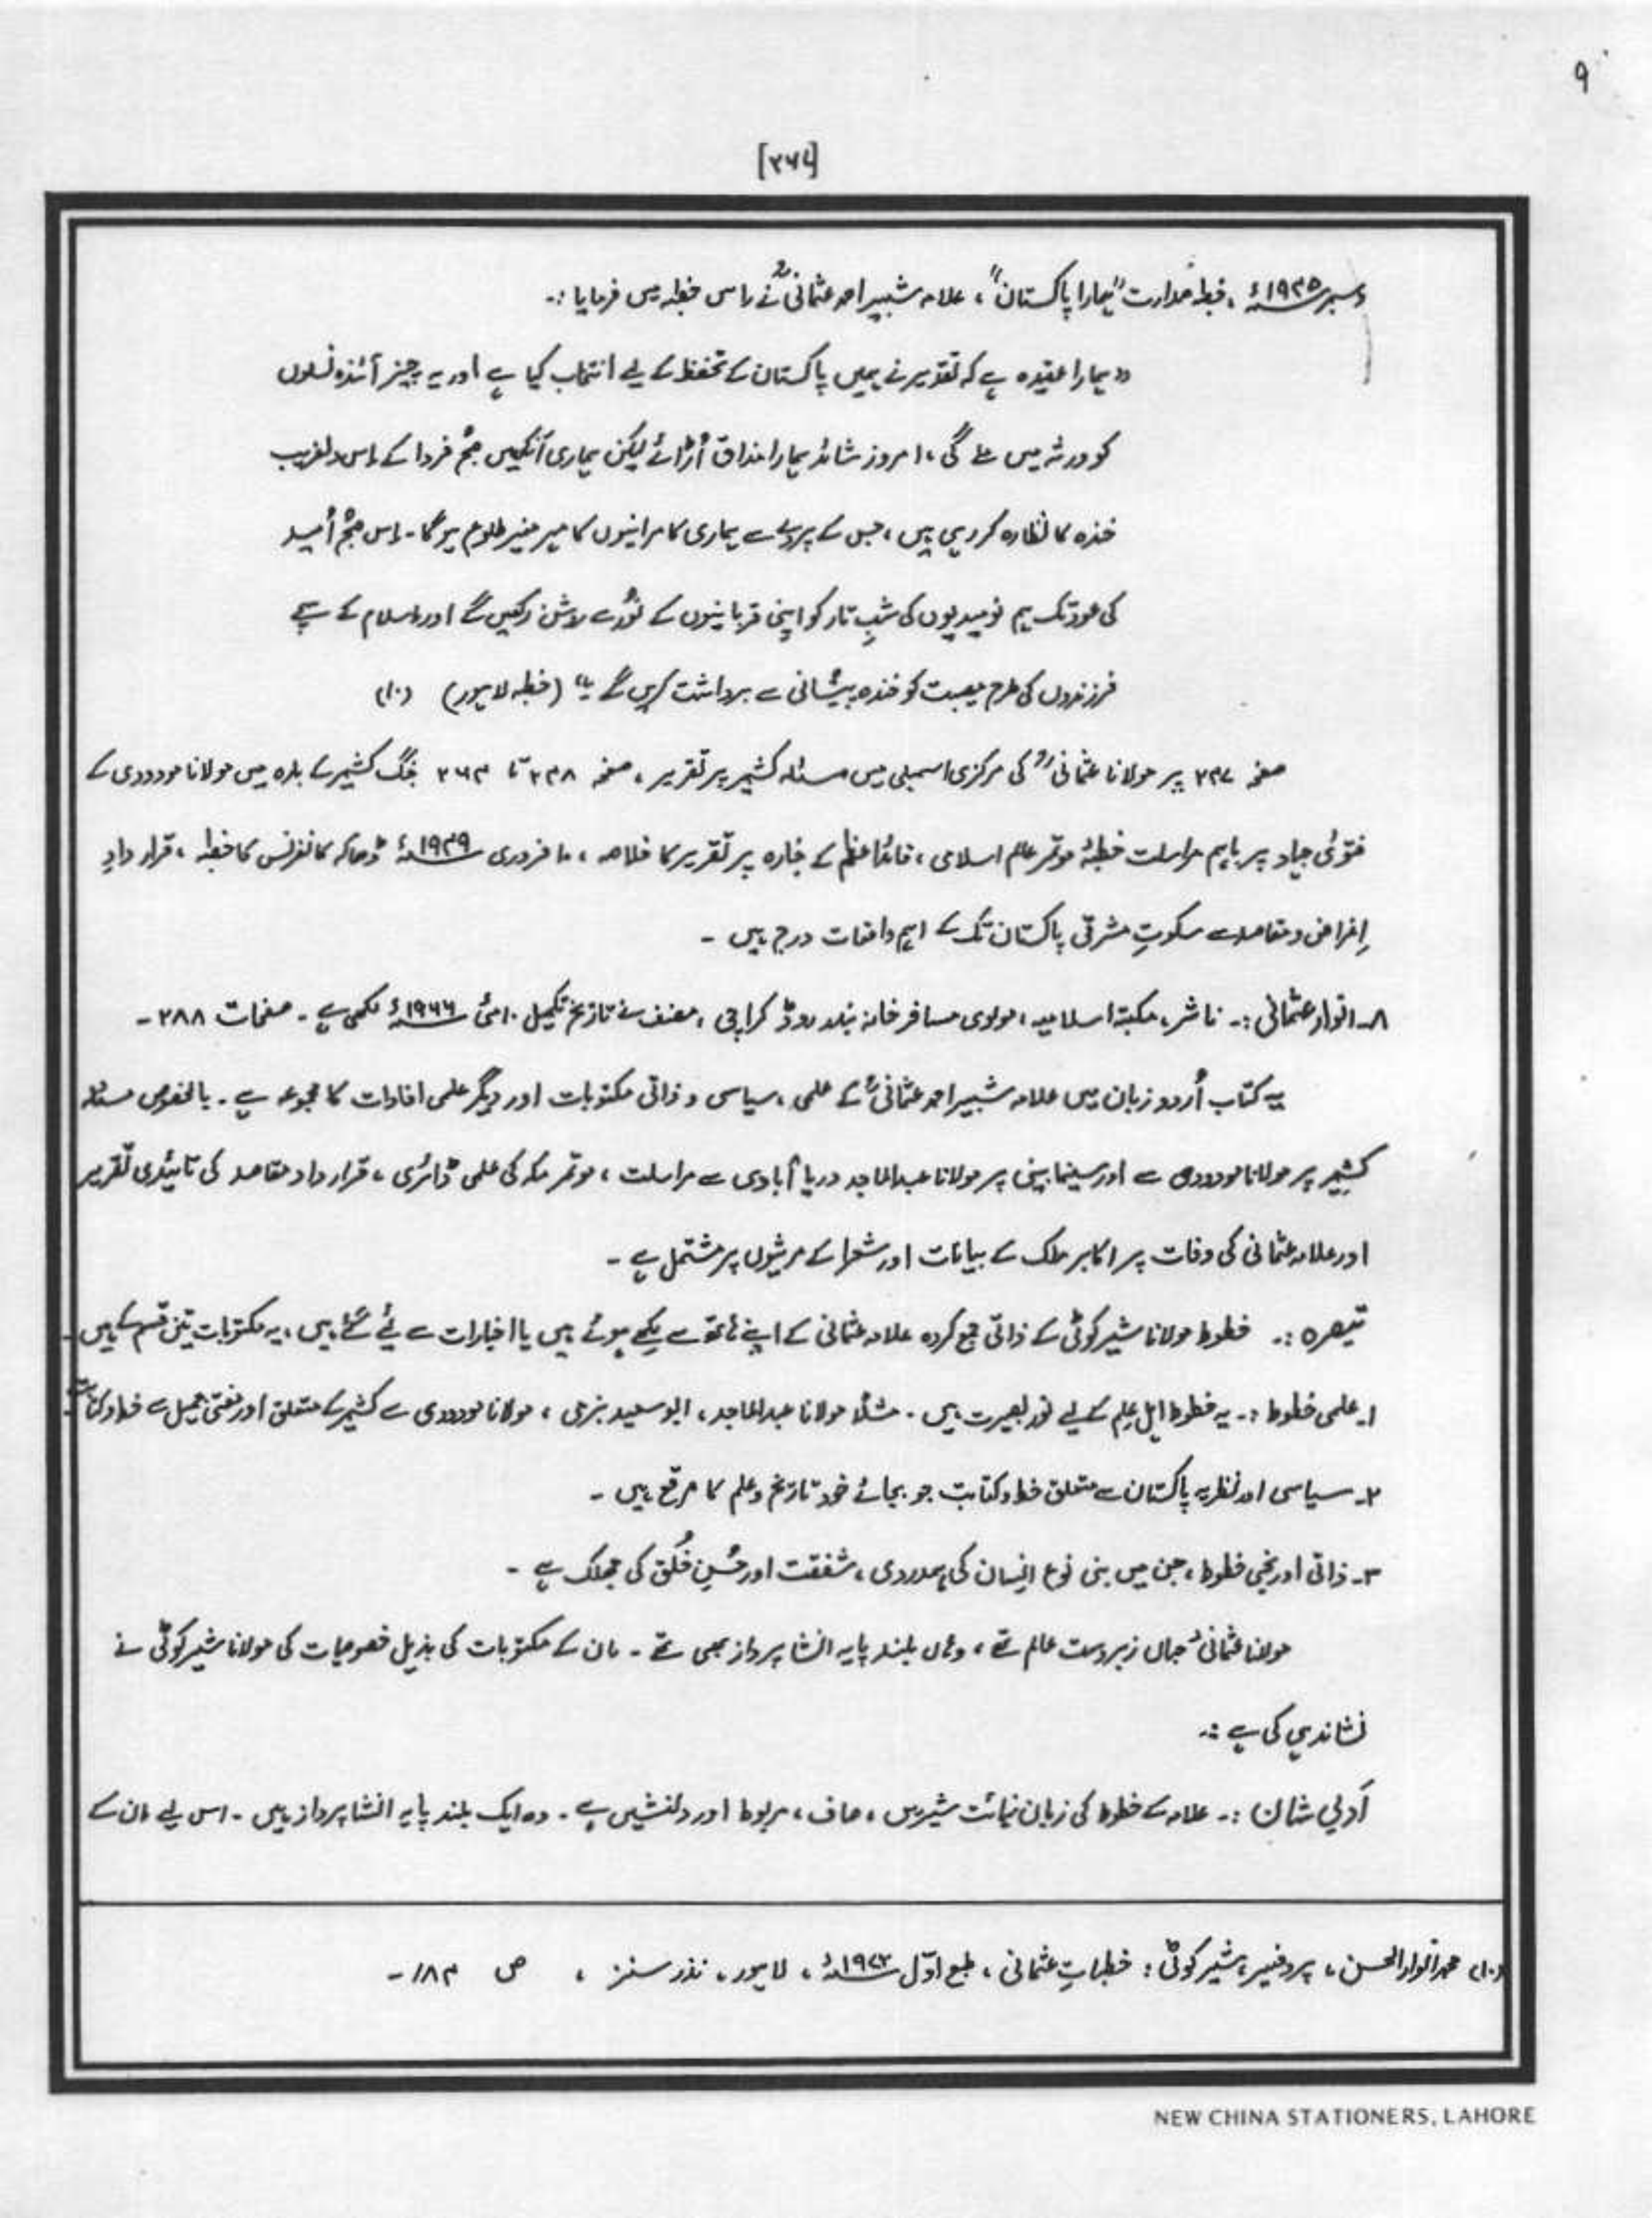 ۹
[۲۶۷]
دسمبر ۱۹۴۵ء، خطبہ صدارت "ہمارا پاکستان"، علامہ شبیر احمد عثمانیؒ نے اس خطبہ میں فرمایا :۔
"ہمارا عقیدہ ہے کہ تقدیر نے ہمیں پاکستان کے تحفظ کے لیے انتخاب کیا ہے اور یہ چیز آئندہ نسلوں
کو ورثہ میں ملے گی، امروز شائد ہمارا مذاق اُڑائے لیکن ہماری آنکھیں صُبحِ فردا کے اس دلفریب
خندہ کا نظارہ کر رہی ہیں، جس کے پردے سے ہماری کامرانیوں کا مہر منیر طلوع ہو گا۔ اِس صُبحِ اُمید
کی نمود تک ہم نومیدیوں کی شبِ تار کو اپنی قربانیوں کے نُور سے روشن رکھیں گے اور اسلام کے سچے
فرزندوں کی طرح مصیبت کو خندہ پیشانی سے برداشت کریں گے۔" (خطبہ لاہور) (۱۰)
صفحہ ۲۴۷ پر مولانا عثمانیؒ کی مرکزی اسمبلی میں مسئلہ کشمیر پر تقریر، صفحہ ۲۴۸ تا ۲۶۴ جنگ کشمیر کے بارہ میں مولانا مودودی کے
فتوئی جہاد پر باہم مراسلت خطبۂ موتمر عالم اسلامی، قائداعظم کے جنازہ پر تقریر کا خلاصہ، ۱۰ فروری ۱۹۴۹ء ڈھاکہ کانفرنس کا خطبہ، قرار دادِ
اِغراض و مقاصد سے سکوتِ مشرقی پاکستان تک کے اہم واقعات درج ہیں ۔
۸۔ انوارِ عثمانی :۔ ناشر، مکتبۃ اسلامیہ، مولوی مسافر خانہ بندر روڈ کراچی، مصنف نے تاریخ تکمیل ۱۰ مئی ۱۹۶۶ء لکھی ہے۔ صفحات ۲۸۸ ۔
یہ کتاب اُردو زبان میں علامہ شبیر احمد عثمانیؒ کے علمی، سیاسی و ذاتی مکتوبات اور دیگر علمی افادات کا مجموعہ ہے۔ بالخصوص مسئلہ
کشمیر پر مولانا مودودی سے اور سینما بینی پر مولانا عبدالماجد دریا آبادی سے مراسلت، موتمر مکہ کی علمی ڈائری، قرار داد مقاصد کی تائیدی تقریر
اور علامہ عثمانی کی وفات پر اکابر ملک کے بیانات اور شعرا کے مرثیوں پر مشتمل ہے ۔
تبصرہ :۔ خطوط مولانا شیر کوٹی کے ذاتی جمع کردہ علامہ عثمانی کے اپنے ہاتھ سے لکھے ہوئے ہیں یا اخبارات سے لیے گئے ہیں، یہ مکتوبات تین قسم کے ہیں ۔
۱۔ علمی خطوط :۔ یہ خطوط اہلِ علم کے لیے نورِ بصیرت ہیں۔ مثلاً مولانا عبدالماجد، ابو سعید بزمی، مولانا مودودی سے کشمیر کے متعلق اور مفتی جمیل سے خط و کتابت
۲۔ سیاسی اور نظریہ پاکستان سے متعلق خط و کتابت جو بجائے خود تاریخ و علم کا مرقع ہیں ۔
۳۔ ذاتی اور نجی خطوط، جن میں بنی نوع انسان کی ہمدردی، شفقت اور حُسنِ خُلق کی جھلک ہے ۔
مولانا عثمانیؒ جہاں زبردست عالم تھے، وہاں بلند پایہ انشا پرداز بھی تھے۔ ان کے مکتوبات کی بذیل خصوصیات کی مولانا شیر کوٹی نے
نشاندہی کی ہے :۔
اَدبی شان :۔ علامہ کے خطوط کی زبان نہائت شیریں، صاف، مربوط اور دلنشیں ہے۔ وہ ایک بلند پایہ انشا پرداز ہیں۔ اس لیے ان کے
(۱۰) محمد انوار الحسن، پروفیسر، شیر کوٹی : خطباتِ عثمانی، طبع اوّل ۱۹۷۲ء، لاہور، نذر سنز، ص ۱۸۴۔
NEW CHINA STATIONERS, LAHORE